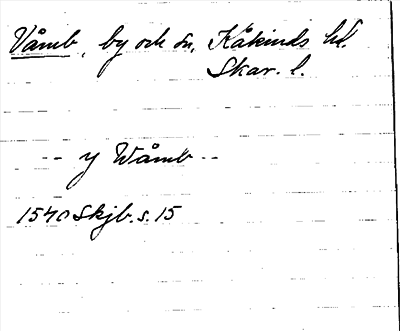 Våmb, by och sn, Kåkinds hd.
Skar. l.
-- y Wåmb --
1540 Skjb. s. 15